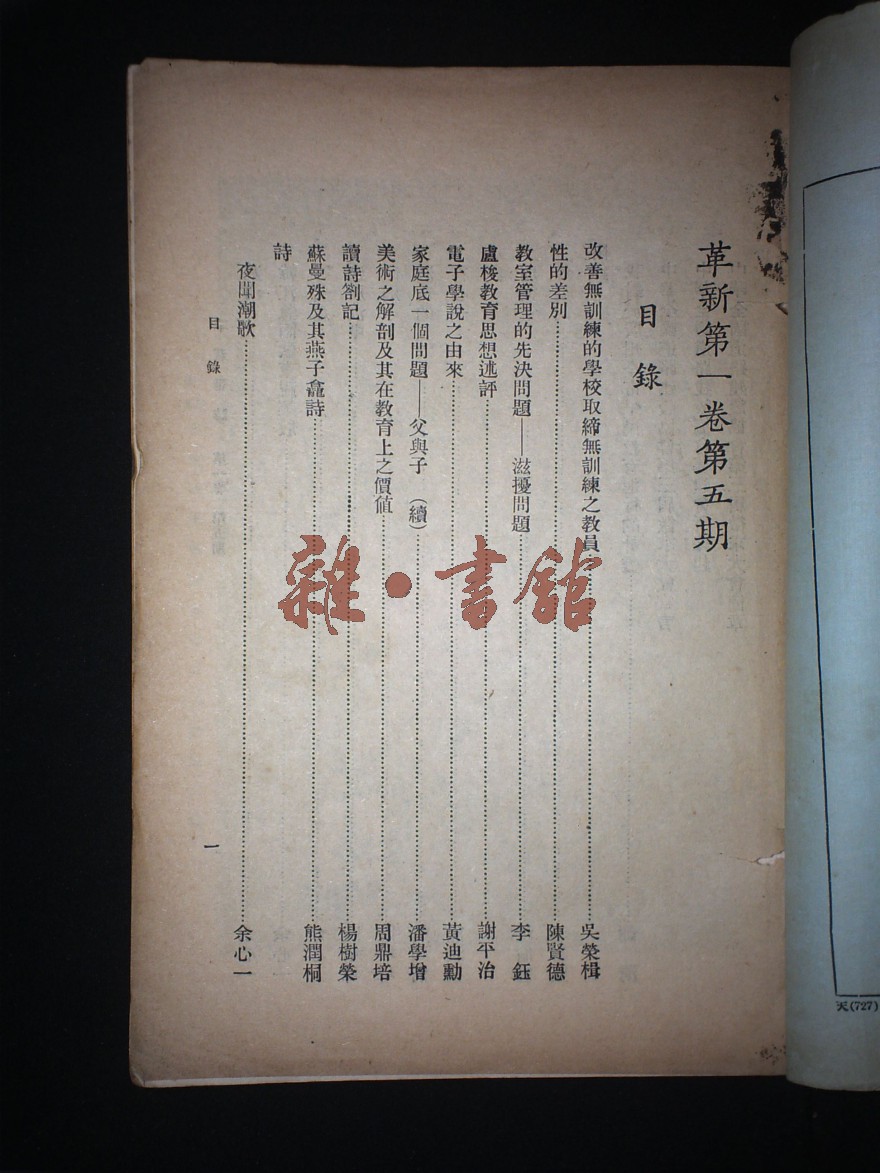 革新第一卷第五期
目錄
改善無訓練的學校取締無訓練之教員……吳榮楫
性的差別……陳賢德
教室管理的先決問題——滋擾問題……李鈺
盧梭教育思想述評……謝平治
電子學說之由來……黃迪勳
家庭底一個問題——父與子（續）……潘學增
美術之解剖及其在教育上之價值……周鼎培
讀詩劄記……楊樹榮
蘇曼殊及其燕子龕詩……熊潤桐
詩
夜聞潮歌……余心一
目錄
一
雜·書館
天(727)